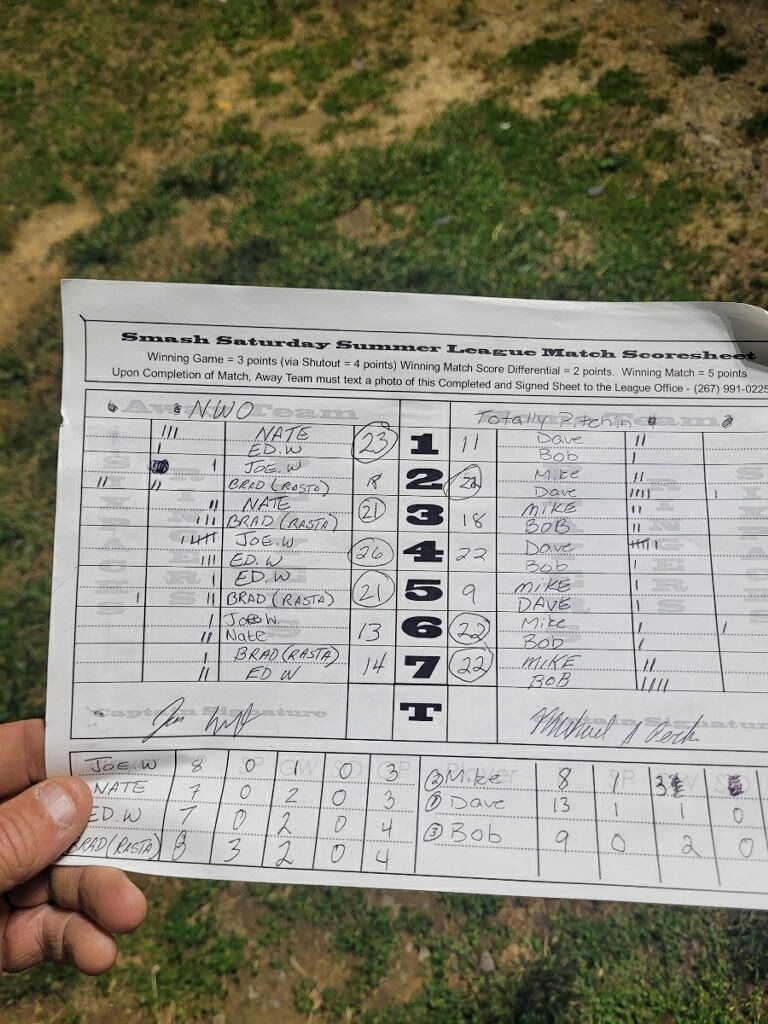 Smash Saturday Summer League Match Scoresheet
Winning Game = 3 points (via Shutout = 4 points) Winning Match Score Differential = 2 points. Winning Match = 5 points
Upon Completion of Match, Away Team must text a photo of this Completed and Signed Sheet to the League Office - (267) 991-0225
Away Team NWO Totally Pitchin Team
NATE 23 1 11 Dave
ED.W Bob
JOE.W 18 2 22 Mike
BRAD (RASTA) Dave
NATE 21 3 18 MIKE
BRAD (RASTA) BOB
JOE.W 26 4 22 Dave
ED.W Bob
ED.W 21 5 9 MIKE
BRAD (RASTA) DAVE
Joe W. 13 6 22 Mike
Nate BOB
BRAD (RASTA) 14 7 22 MIKE
ED W BOB
Captain Signature T Captain Signature
JOE.W 8 0 1 0 3 Player Mike 8 1 3
NATE 7 0 2 0 3 Dave 13 1 1 0
ED.W 7 0 2 0 4 Bob 9 0 2 0
BRAD (RASTA) 8 3 2 0 4